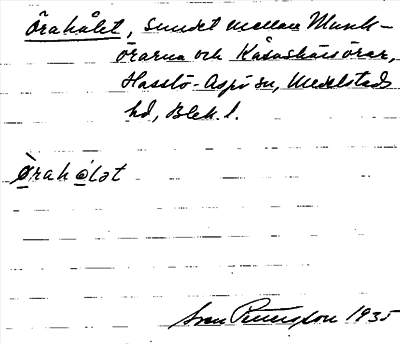 Örahålet, sundet mellan Munk-
örarna och Kåsaskärsörar,
Hasslö-Aspö sn, Medelstads
hd, Blek. l.
Òrahólət
Sven Bengtsson 1935